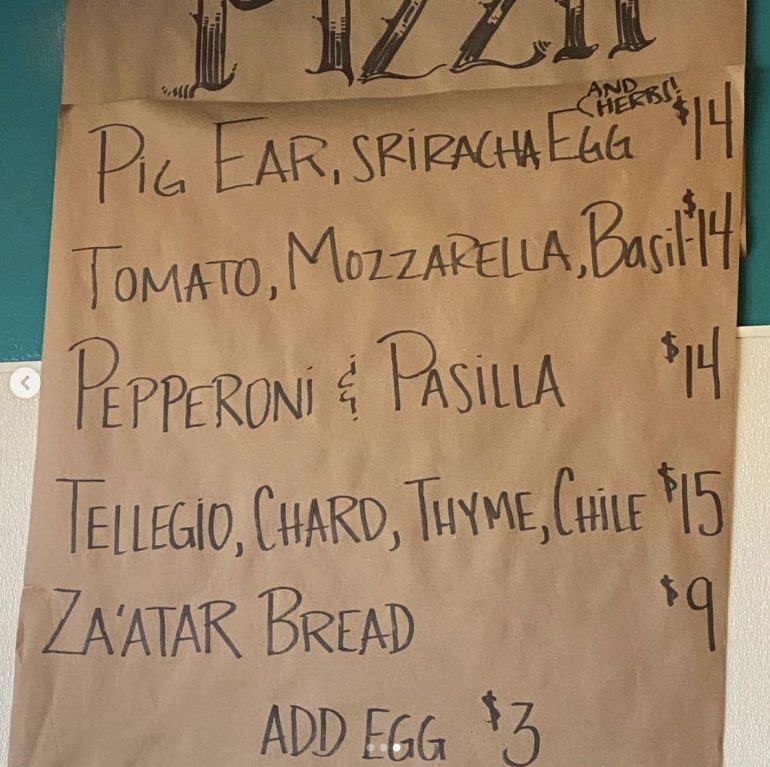 PIZZA
AND HERBS!
PIG EAR, SRIRACHA, EGG $14
TOMATO, MOZZARELLA, Basil $14
PEPPERONI & PASILLA $14
TELLEGIO, CHARD, THYME, CHILE $15
ZA'ATAR BREAD $9
ADD EGG $3